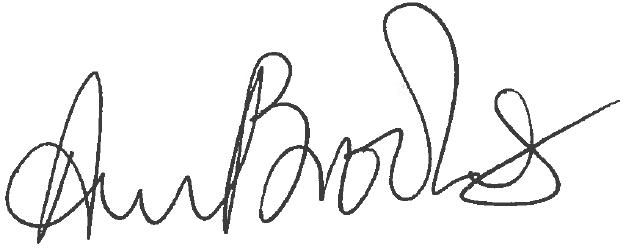 Ann Brooks